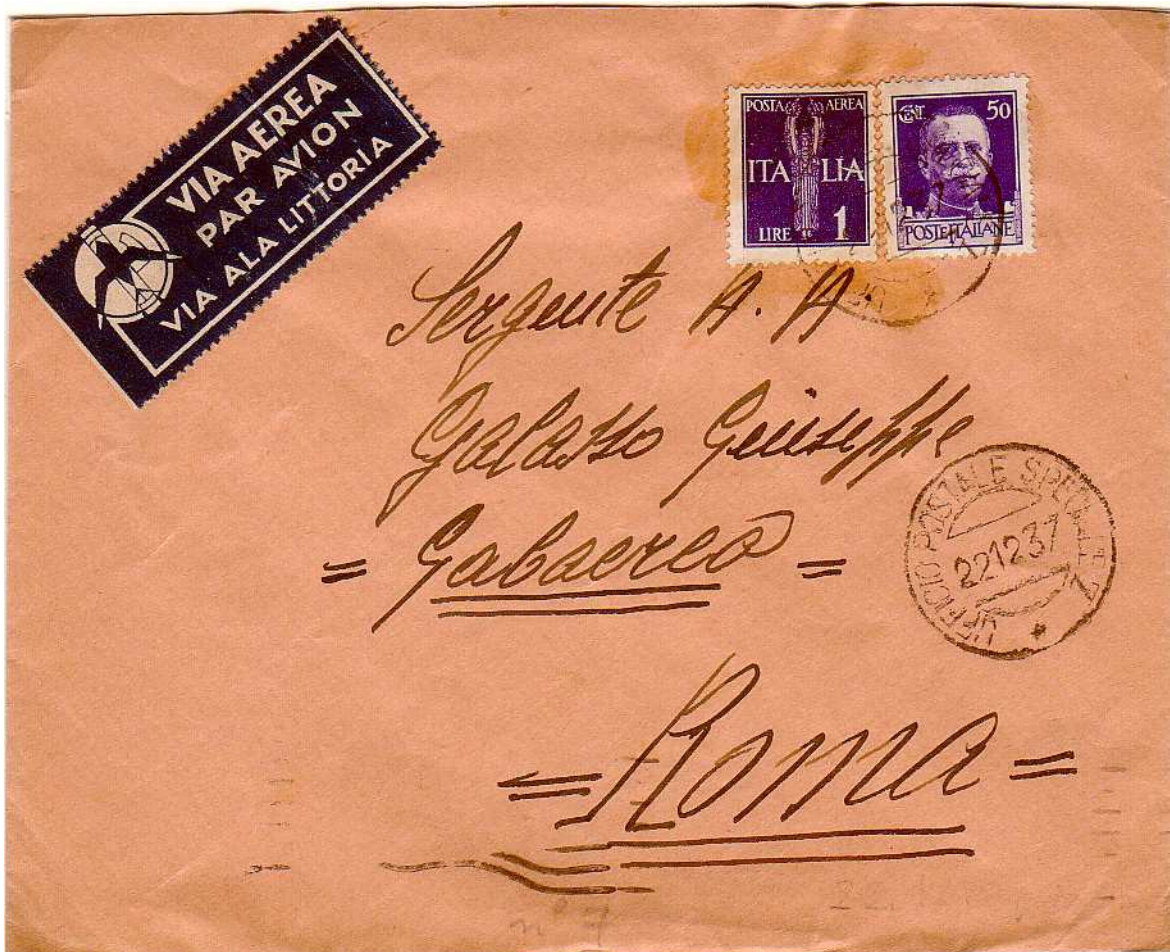 VIA AEREA
PAR AVION
VIA ALA LITTORIA
POSTA AEREA
ITALIA
LIRE 1
CENT. 50
POSTE ITALIANE
Sergente A. A
Galasso Giuseppe
= Gabaereo =
UFFICIO POSTALE SPECIALE 7
22.12.37
= Roma =
n° 7